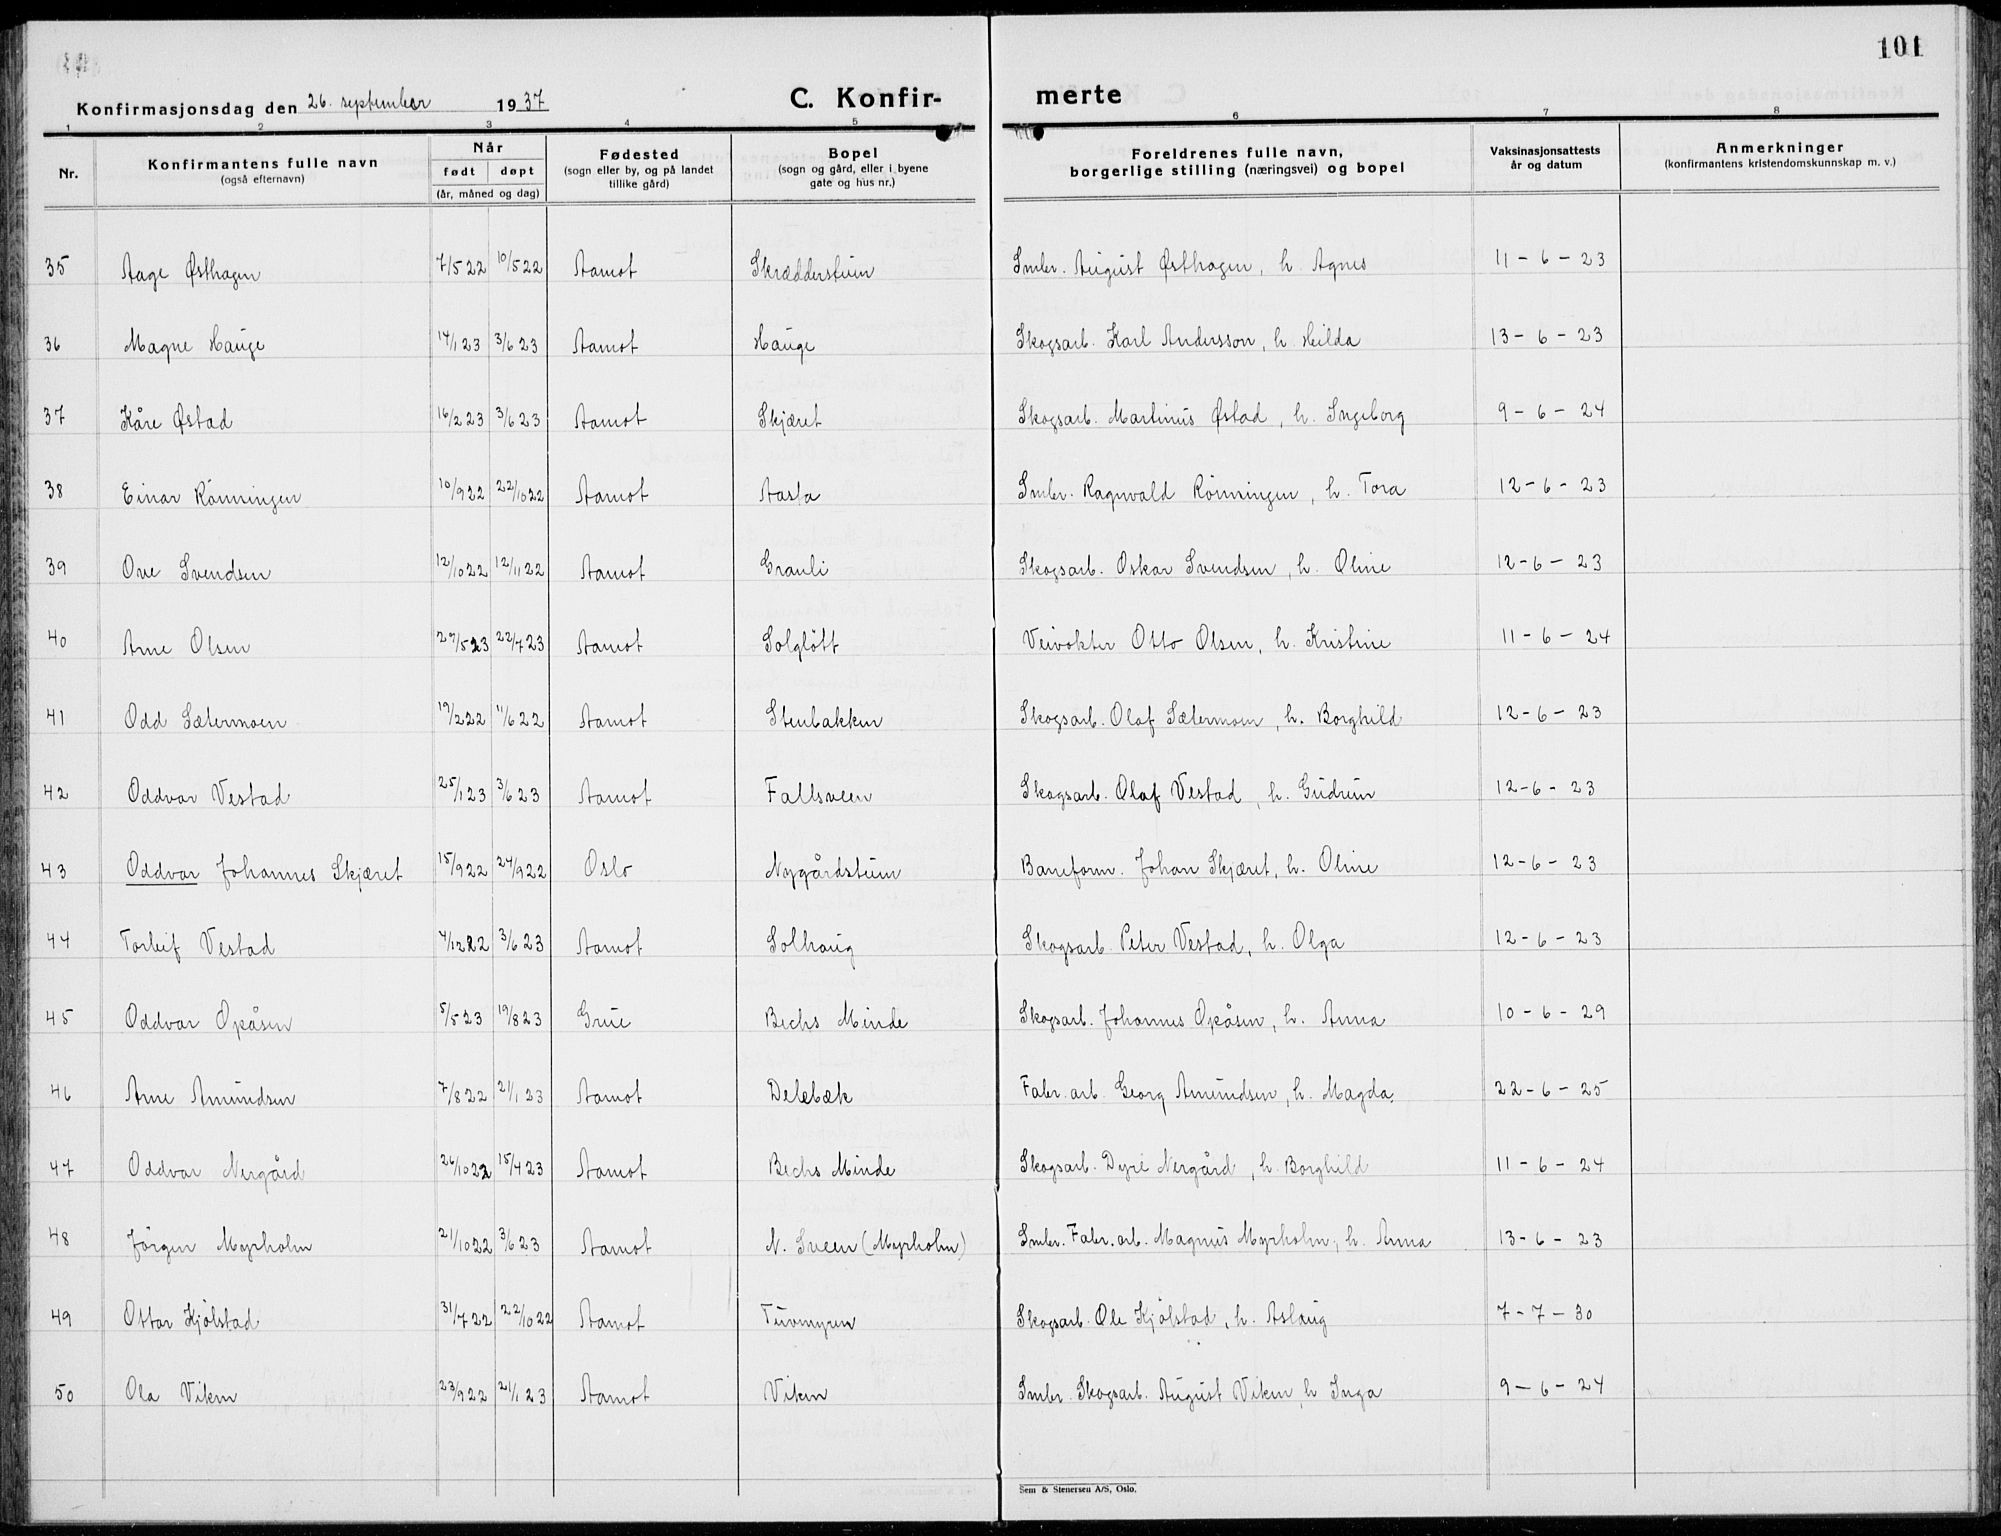 101
Konfirmasjonsdag den 26. september 1937 C. Konfirmerte
1 2 3 4 5 6 7 8
Nr. | Konfirmantens fulle navn (også efternavn) | Når født døpt (år, måned og dag) | Fødested (sogn eller by, og på landet tillike gård) | Bopel (sogn og gård, eller i byene gate og hus nr.) | Foreldrenes fulle navn, borgerlige stilling (næringsvei) og bopel | Vaksinasjonsattests år og datum | Anmerkninger (konfirmantens kristendomskunnskap m. v.)
35 Aage Østhagen 7/5 22 10/5 22 Aamot Skrædderstuen Smbr. August Østhagen, h. Agnes 11-6-23
36 Magne Hauge 14/1 23 3/6 23 Aamot Hauge Skogsarb. Karl Andersson, h. Hilda 13-6-23
37 Kåre Østad 16/2 23 3/6 23 Aamot Skjæret Skogsarb. Martinus Østad, h. Ingeborg 9-6-24
38 Einar Rönningen 10/9 22 22/10 22 Aamot Aasta Smbr. Ragnvald Rönningen, h. Tora 12-6-23
39 Ove Svendsen 12/10 22 12/11 22 Aamot Granli Skogsarb. Oskar Svendsen, h. Oline 12-6-23
40 Arne Olsen 27/5 23 22/7 23 Aamot Solglött Veivokter Otto Olsen, h. Kristine 11-6-24
41 Odd Sætermoen 19/2 22 11/6 22 Aamot Stenbakken Skogsarb. Olaf Sætermoen, h. Borghild 12-6-23
42 Oddvar Vestad 25/1 23 3/6 23 Aamot Fallsveen Skogsarb. Olaf Vestad, h. Gudrun 12-6-23
43 Oddvar Johannes Skjæret 15/9 22 24/9 22 Oslo Nygårdstuen Baneform. Johan Skjæret, h. Oline 12-6-23
44 Torleif Vestad 4/12 22 3/6 23 Aamot Solhaug Skogsarb. Peter Vestad, h. Olga 12-6-23
45 Oddvar Opåsen 5/5 23 19/8 23 Grue Bechs Minde Skogsarb. Johannes Opåsen, h. Anna 10-6-29
46 Arne Amundsen 7/8 22 21/1 23 Aamot Delebæk Fabr. arb. Georg Amundsen, h. Magda. 22-6-25
47 Oddvar Nergård 26/10 22 15/4 23 Aamot Bechs Minde Skogsarb. Dyre Nergård, h. Borghild 11-6-24
48 Jörgen Myrholm 21/10 22 3/6 23 Aamot N. Sveen (Myrholm) Smbr. Fabr. arb. Magnus Myrholm, h. Anna 13-6-23
49 Ottar Kjölstad 31/7 22 22/10 22 Aamot Tuvmyren Skogsarb. Ole Kjölstad, h. Aslaug 7-7-30
50 Ola Viken 23/9 22 21/1 23 Aamot Viken Smbr. Skogsarb. August Viken, h Inga 9-6-24
Sem & Stenersen A/S, Oslo.